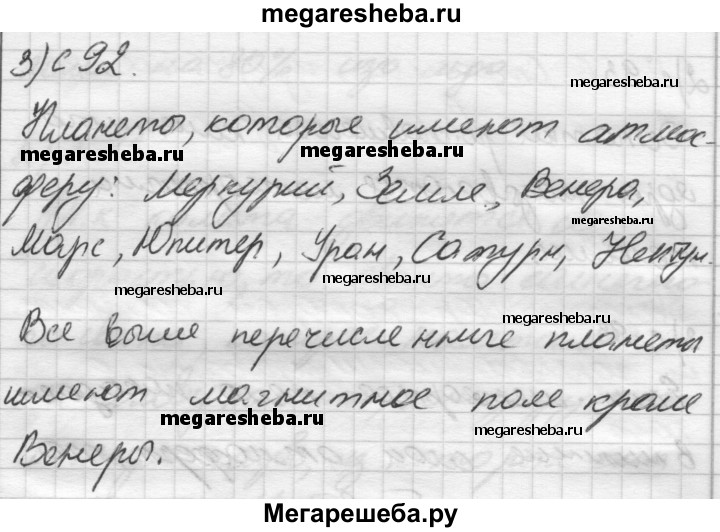 megaresheba.ru
3) с 92.
megaresheba.ru
Планеты, которые имеют атмос-
megaresheba.ru
megaresheba.ru
феру: Меркурий, Земле, Венера,
megaresheba.ru
Марс, Юпитер, Уран, Сатурн, Нептун.
megaresheba.ru
megaresheba.ru
Все выше перечисленные планеты
имеют магнитное поле кроме
megaresheba.ru
megaresheba.ru
Венеры.
Мегарешеба.ру